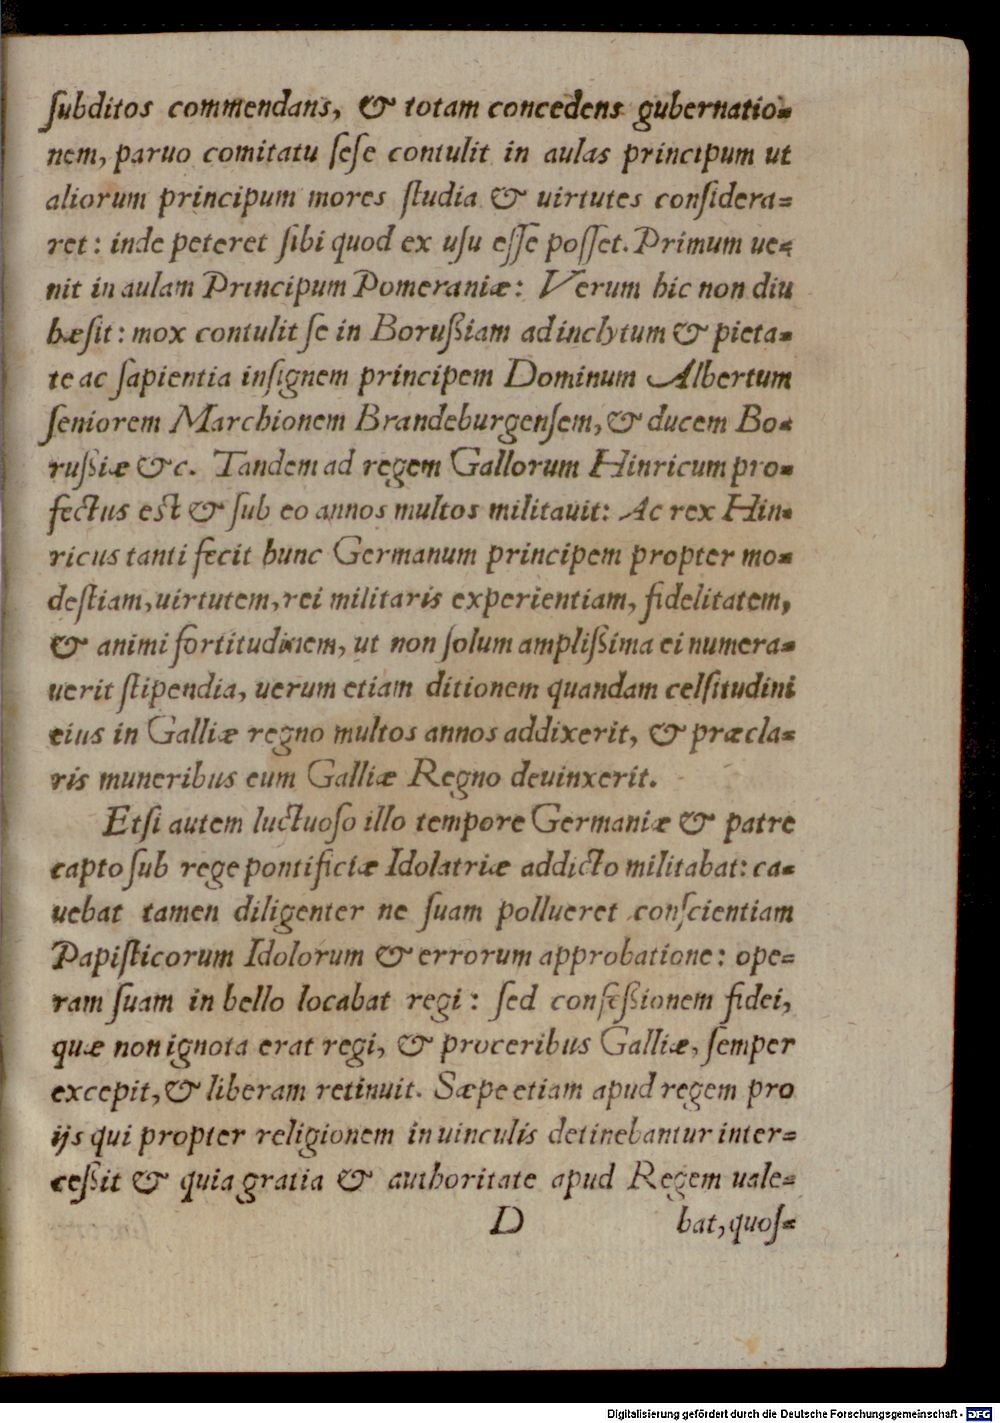 ſubditos commendans, & totam concedens gubernatio=
nem, paruo comitatu ſeſe contulit in aulas principum ut
aliorum principum mores ſtudia & uirtutes conſidera=
ret: inde peteret ſibi quod ex uſu eſſe poſſet. Primum ue=
nit in aulam Principum Pomeraniæ: Verum hic non diu
hæſit: mox contulit ſe in Borußiam ad inclytum & pieta=
te ac ſapientia inſignem principem Dominum Albertum
ſeniorem Marchionem Brandeburgenſem, & ducem Bo=
rußiæ &c. Tandem ad regem Gallorum Hinricum pro=
fectus est & ſub eo annos multos militauit: Ac rex Hin=
ricus tanti fecit hunc Germanum principem propter mo=
deſtiam, uirtutem, rei militaris experientiam, fidelitatem,
& animi fortitudinem, ut non ſolum amplißima ei numera=
uerit ſtipendia, uerum etiam ditionem quandam celſitudini
eius in Galliæ regno multos annos addixerit, & præcla=
ris muneribus eum Galliæ Regno deuinxerit.
Etſi autem luctuoſo illo tempore Germaniæ & patre
capto ſub rege pontificiæ Idolatriæ addicto militabat: ca=
uebat tamen diligenter ne ſuam pollueret conſcientiam
Papiſticorum Idolorum & errorum approbatione: ope=
ram ſuam in bello locabat regi: ſed confeßionem fidei,
quæ non ignota erat regi, & proceribus Galliæ, ſemper
excepit, & liberam retinuit. Sæpe etiam apud regem pro
ijs qui propter religionem in uinculis detinebantur inter=
ceßit & quia gratia & authoritate apud Regem uale=
D bat, quoſ=
Digitalisierung gefördert durch die Deutsche Forschungsgemeinschaft - DFG